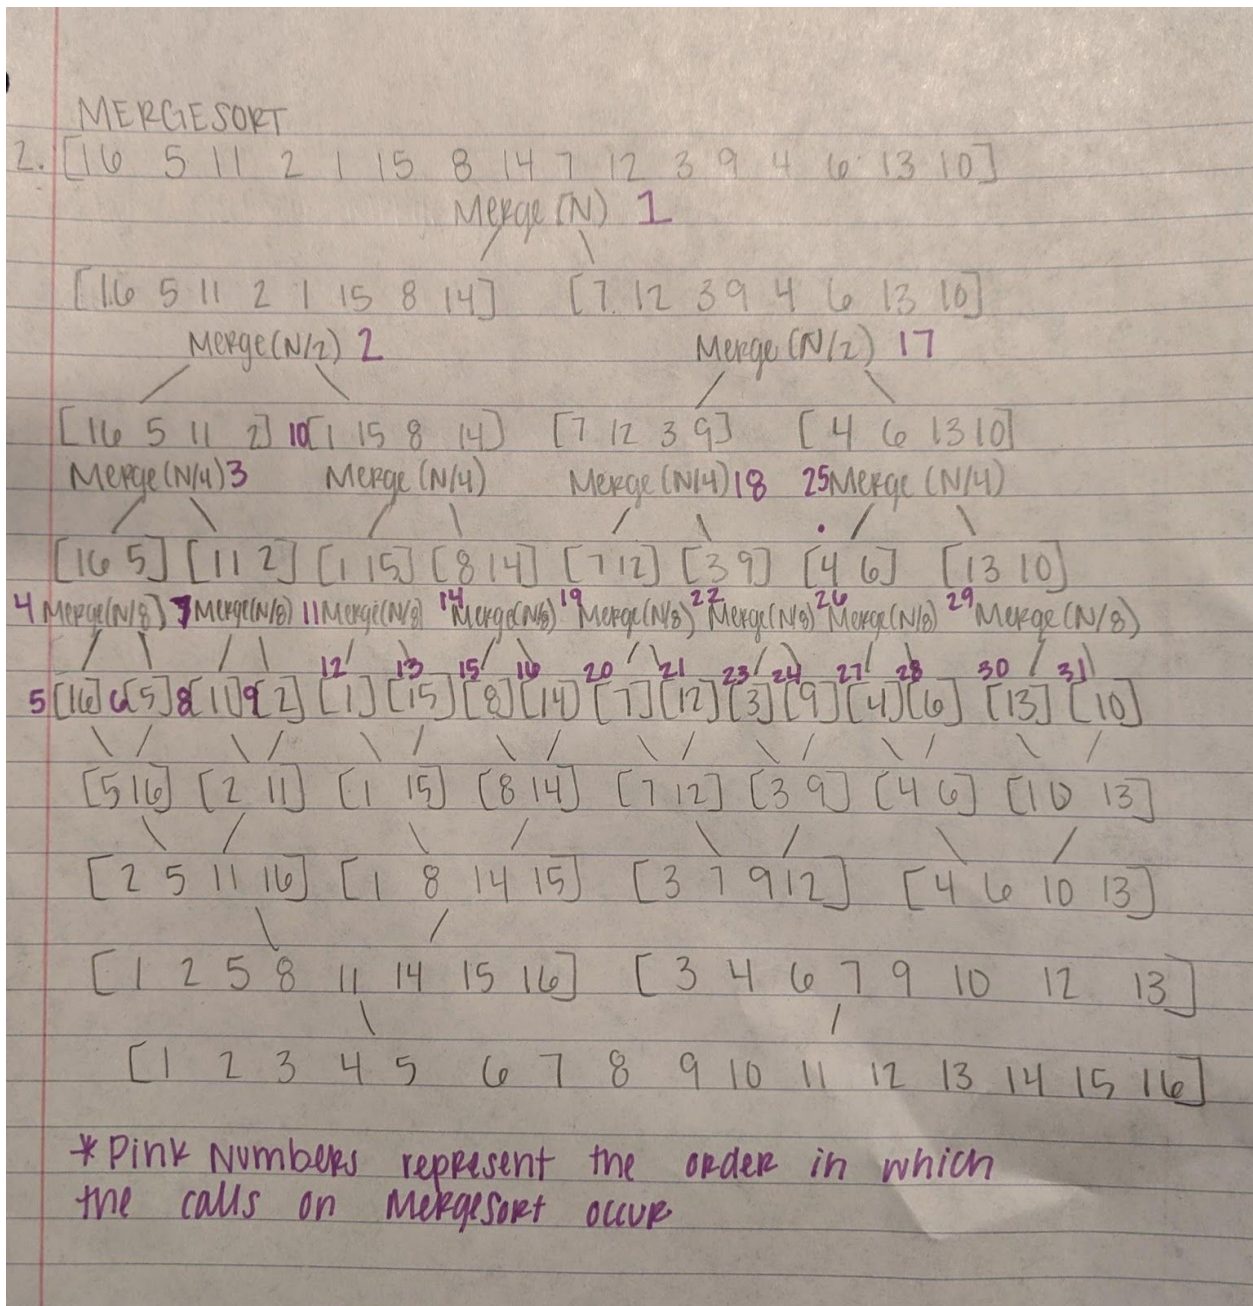 MERGESORT
2. [16 5 11 2 1 15 8 14 7 12 3 9 4 6 13 10]
Merge (N) 1
[16 5 11 2 1 15 8 14] [7 12 3 9 4 6 13 10]
Merge(N/2) 2 Merge (N/2) 17
[16 5 11 2] 10 [1 15 8 14] [7 12 3 9] [4 6 13 10]
Merge(N/4) 3 Merge (N/4) Merge (N/4) 18 25 Merge (N/4)
[16 5] [11 2] [1 15] [8 14] [7 12] [3 9] [4 6] [13 10]
4 Merge(N/8) 7 Merge(N/8) 11 Merge(N/8) 14 Merge(N/8) 19 Merge(N/8) 22 Merge(N/8) 26 Merge(N/8) 29 Merge(N/8)
12 13 15 16 20 21 23 24 27 28 30 31
5 [16] 6 [5] 8 [11] 9 [2] [1] [15] [8] [14] [7] [12] [3] [9] [4] [6] [13] [10]
[5 16] [2 11] [1 15] [8 14] [7 12] [3 9] [4 6] [10 13]
[2 5 11 16] [1 8 14 15] [3 7 9 12] [4 6 10 13]
[1 2 5 8 11 14 15 16] [3 4 6 7 9 10 12 13]
[1 2 3 4 5 6 7 8 9 10 11 12 13 14 15 16]
* Pink Numbers represent the order in which
the calls on Mergesort occur